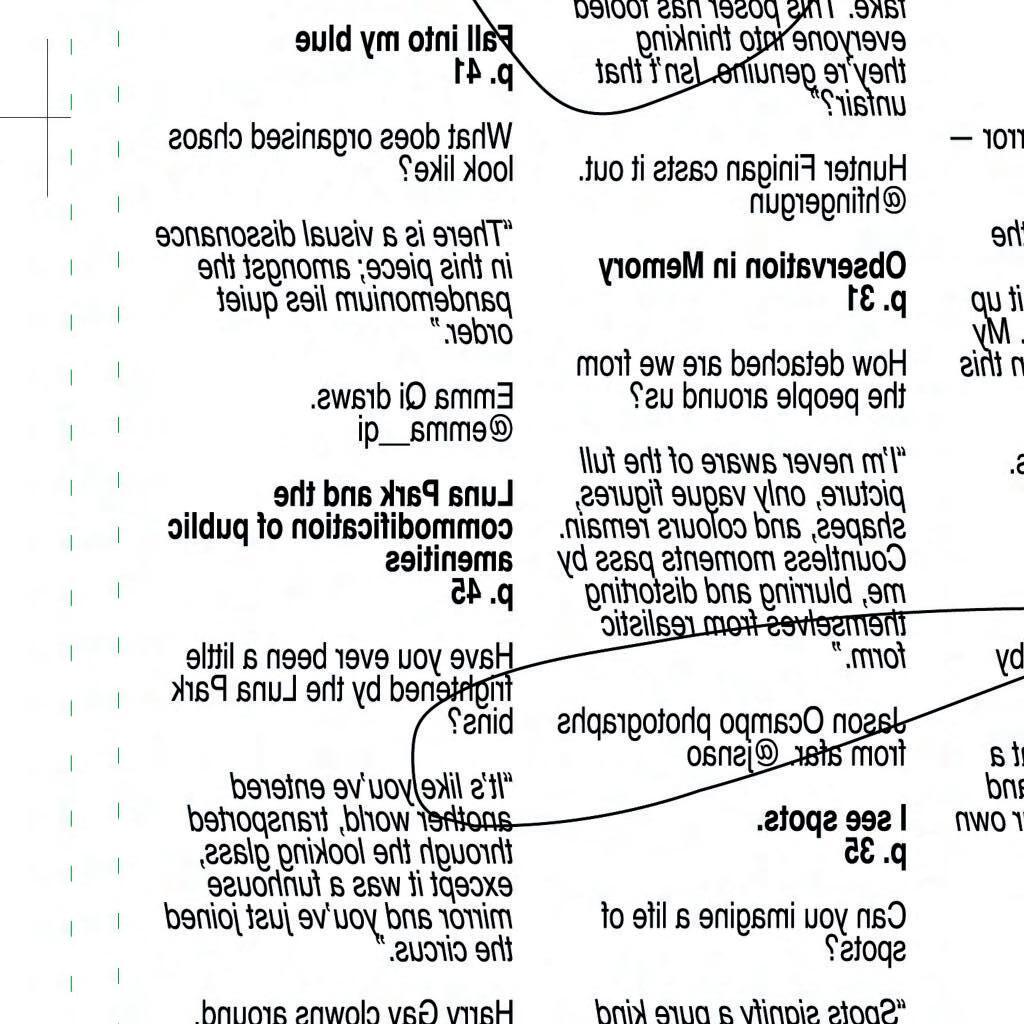 rror –
the
it up
. My
n this
s.
by
t a
and
r own
fake. This poser has fooled
everyone into thinking
they’re genuine. Isn’t that
unfair?”
Hunter Finigan casts it out.
@hfingergun
Observation in Memory
p. 31
How detached are we from
the people around us?
“I’m never aware of the full
picture, only vague figures,
shapes, and colours remain.
Countless moments pass by
me, blurring and distorting
themselves from realistic
form.”
Jason Ocampo photographs
from afar. @jsnao
I see spots.
p. 35
Can you imagine a life of
spots?
“Spots signify a pure kind
Fall into my blue
p. 41
What does organised chaos
look like?
“There is a visual dissonance
in this piece; amongst the
pandemonium lies quiet
order.”
Emma Qi draws.
@emma__qi
Luna Park and the
commodification of public
amenities
p. 45
Have you ever been a little
frightened by the Luna Park
bins?
“It’s like you’ve entered
another world, transported
through the looking glass,
except it was a funhouse
mirror and you’ve just joined
the circus.”
Harry Gay clowns around.